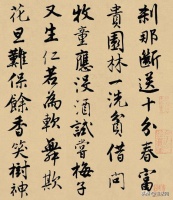 刹那断送十分春富
貴園林一洗貧借問
牧童應没酒試嘗梅子
又生仁若為軟舞欺
花旦難保餘香笑樹神